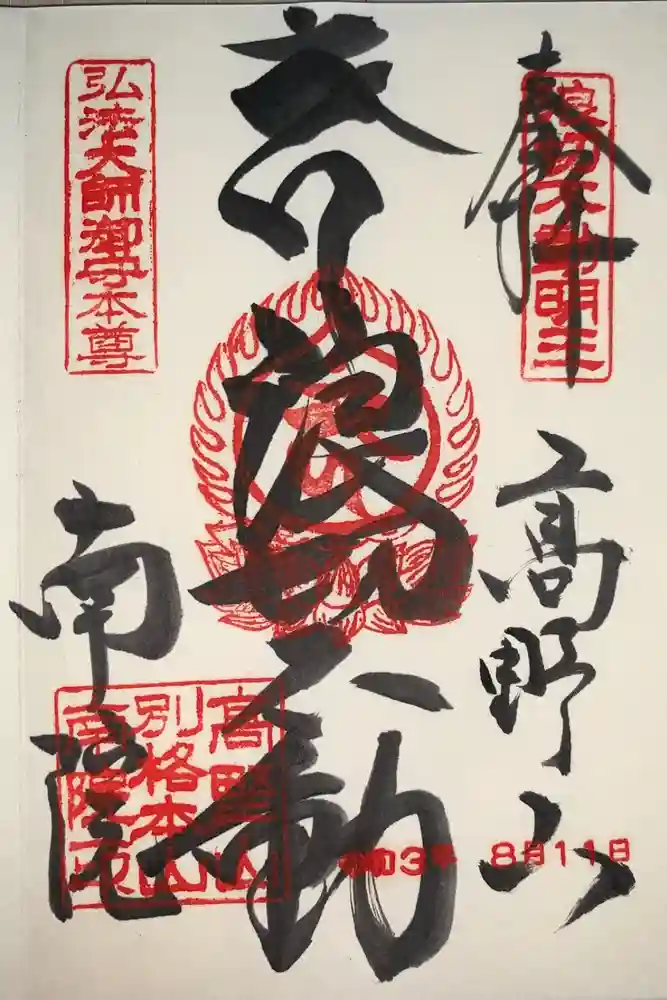 奉拝
高野山
浪切不動
南院
浪切不動明王
弘法大師御守本尊
高野山
別格本山
南院印
令和3年 8月11日